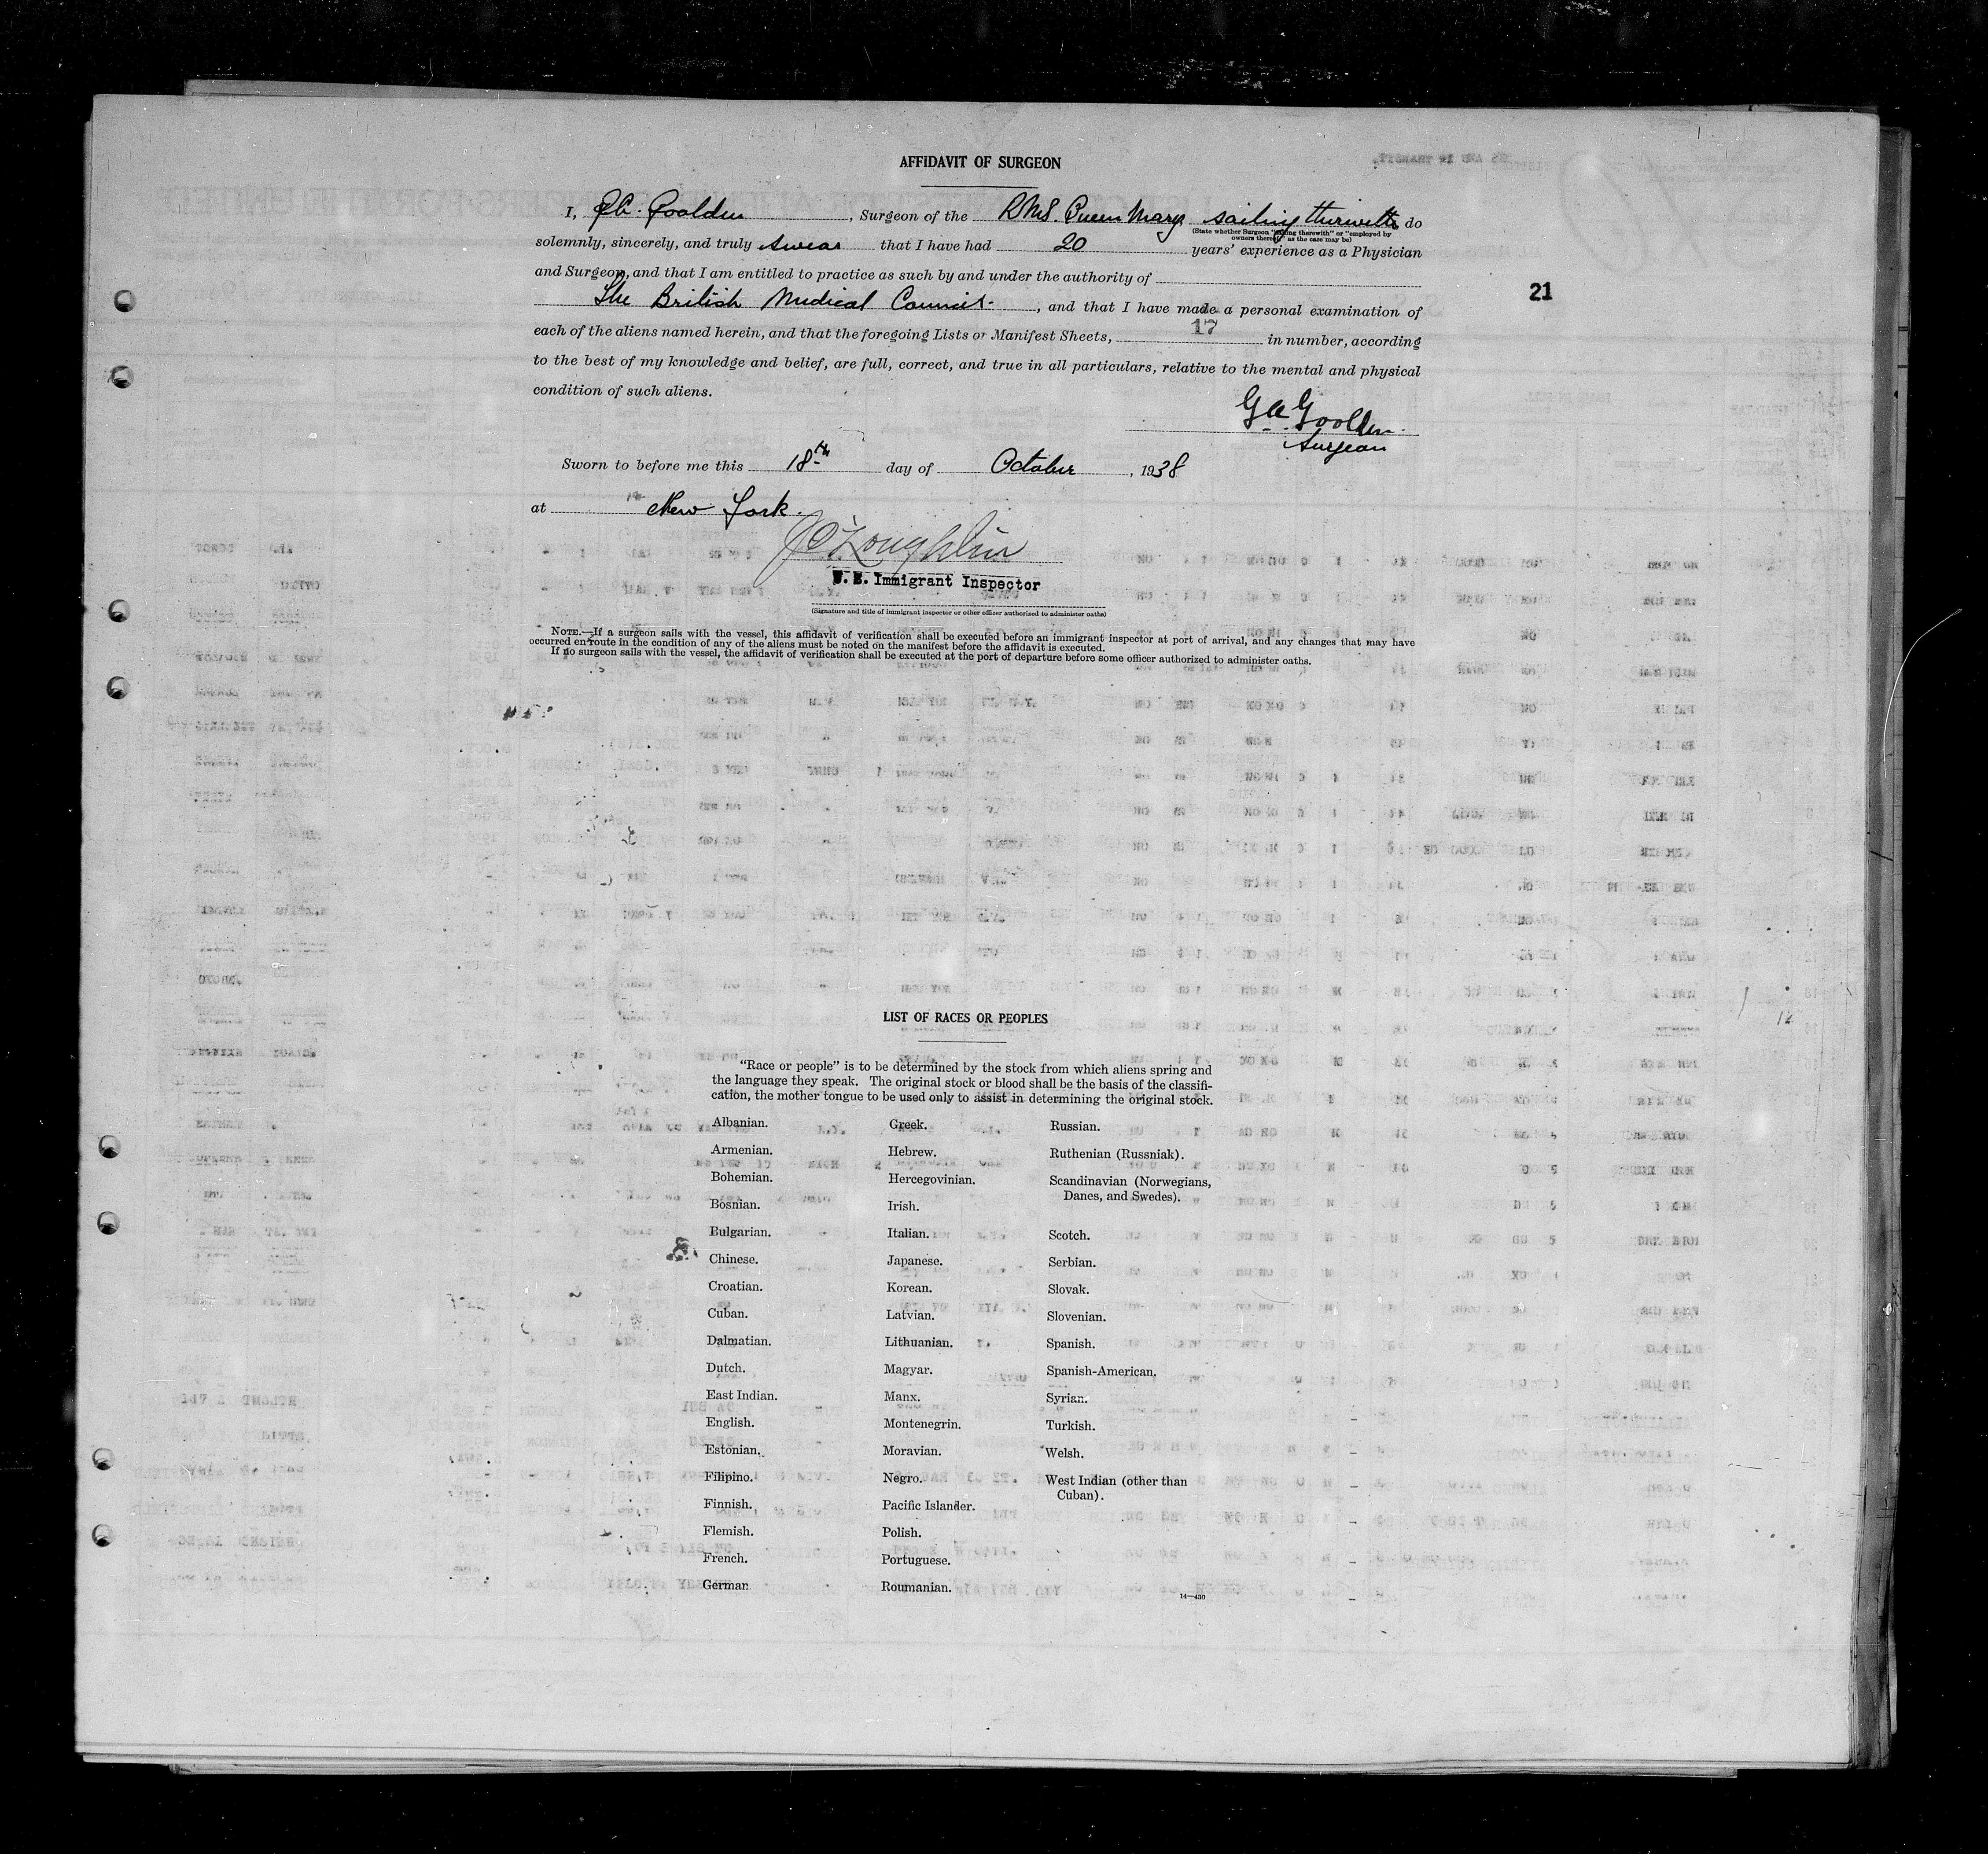 AFFIDAVIT OF SURGEON
I, G.A. Goolden, Surgeon of the R.M.S. Queen Mary sailing therewith do
(State whether Surgeon "sailing therewith" or "employed by
owners thereof" as the case may be)
solemnly, sincerely, and truly swear that I have had 20 years' experience as a Physician
and Surgeon, and that I am entitled to practice as such by and under the authority of
The British Medical Council, and that I have made a personal examination of
each of the aliens named herein, and that the foregoing Lists or Manifest Sheets, 17 in number, according
to the best of my knowledge and belief, are full, correct, and true in all particulars, relative to the mental and physical
condition of such aliens.
21
G A Goolden.
Surgeon
Sworn to before me this 18th day of October, 1938
at New York.
J O'Loughlin
U. S. Immigrant Inspector
(Signature and title of immigrant inspector or other officer authorized to administer oaths)
NOTE.—If a surgeon sails with the vessel, this affidavit of verification shall be executed before an immigrant inspector at port of arrival, and any changes that may have
occurred en route in the condition of any of the aliens must be noted on the manifest before the affidavit is executed.
If no surgeon sails with the vessel, the affidavit of verification shall be executed at the port of departure before some officer authorized to administer oaths.
LIST OF RACES OR PEOPLES
"Race or people" is to be determined by the stock from which aliens spring and
the language they speak. The original stock or blood shall be the basis of the classifi-
cation, the mother tongue to be used only to assist in determining the original stock.
Albanian.
Armenian.
Bohemian.
Bosnian.
Bulgarian.
Chinese.
Croatian.
Cuban.
Dalmatian.
Dutch.
East Indian.
English.
Estonian.
Filipino.
Finnish.
Flemish.
French.
German
Greek.
Hebrew.
Hercegovinian.
Irish.
Italian.
Japanese.
Korean.
Latvian.
Lithuanian.
Magyar.
Manx.
Montenegrin.
Moravian.
Negro.
Pacific Islander.
Polish.
Portuguese.
Roumanian.
Russian.
Ruthenian (Russniak).
Scandinavian (Norwegians,
Danes, and Swedes).
Scotch.
Serbian.
Slovak.
Slovenian.
Spanish.
Spanish-American.
Syrian.
Turkish.
Welsh.
West Indian (other than
Cuban).
14—430